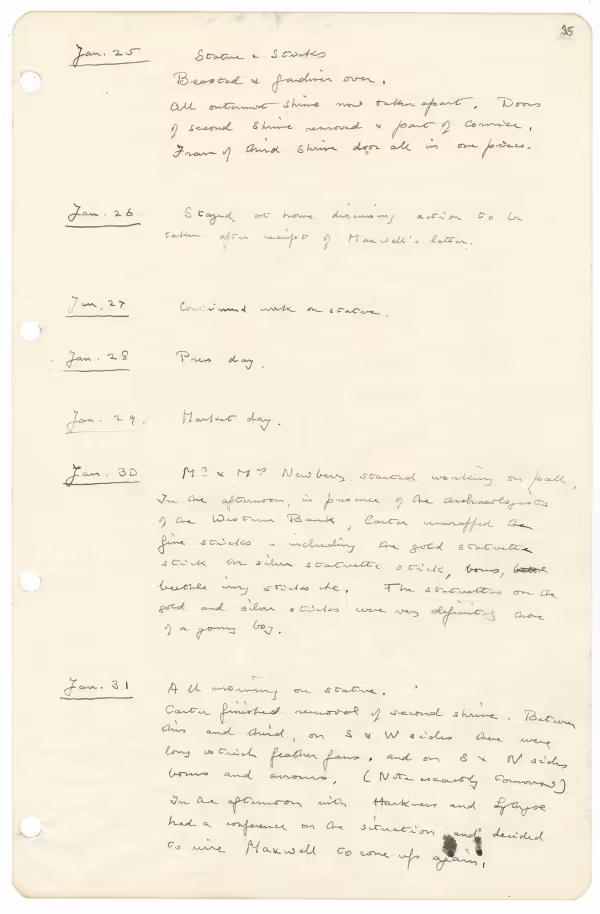 35
Jan. 25 Statue & Sticks
Breasted & Gardiner over.
All outermost shrine now taken apart. Doors
of second shrine removed & part of cornice.
Frame of third shrine door all in one piece.
Jan. 26 Stayed at home discussing action to be
taken after receipt of Maxwell's letter.
Jan. 27 Continued work on statue.
Jan. 28 Press day.
Jan. 29. Market day.
Jan. 30 Mr & Mrs Newberry started working on pall.
In the afternoon, in presence of the archaeologists
of the Western Bank, Carter unwrapped the
fine sticks - including the gold statuette
stick the silver statuette stick, bows,
beetle wing sticks etc. The statuettes on the
gold and silver sticks were very definitely those
of a young boy.
Jan. 31 All morning on statue.
Carter finished removal of second shrine. Between
this and third, on S & W sides there were
long ostrich feather fans, and on S & N sides
bows and arrows. (Note exactly tomorrow)
In the afternoon with Harkness and Lythgoe
had a conference on the situation and decided
to wire Maxwell to come up again.